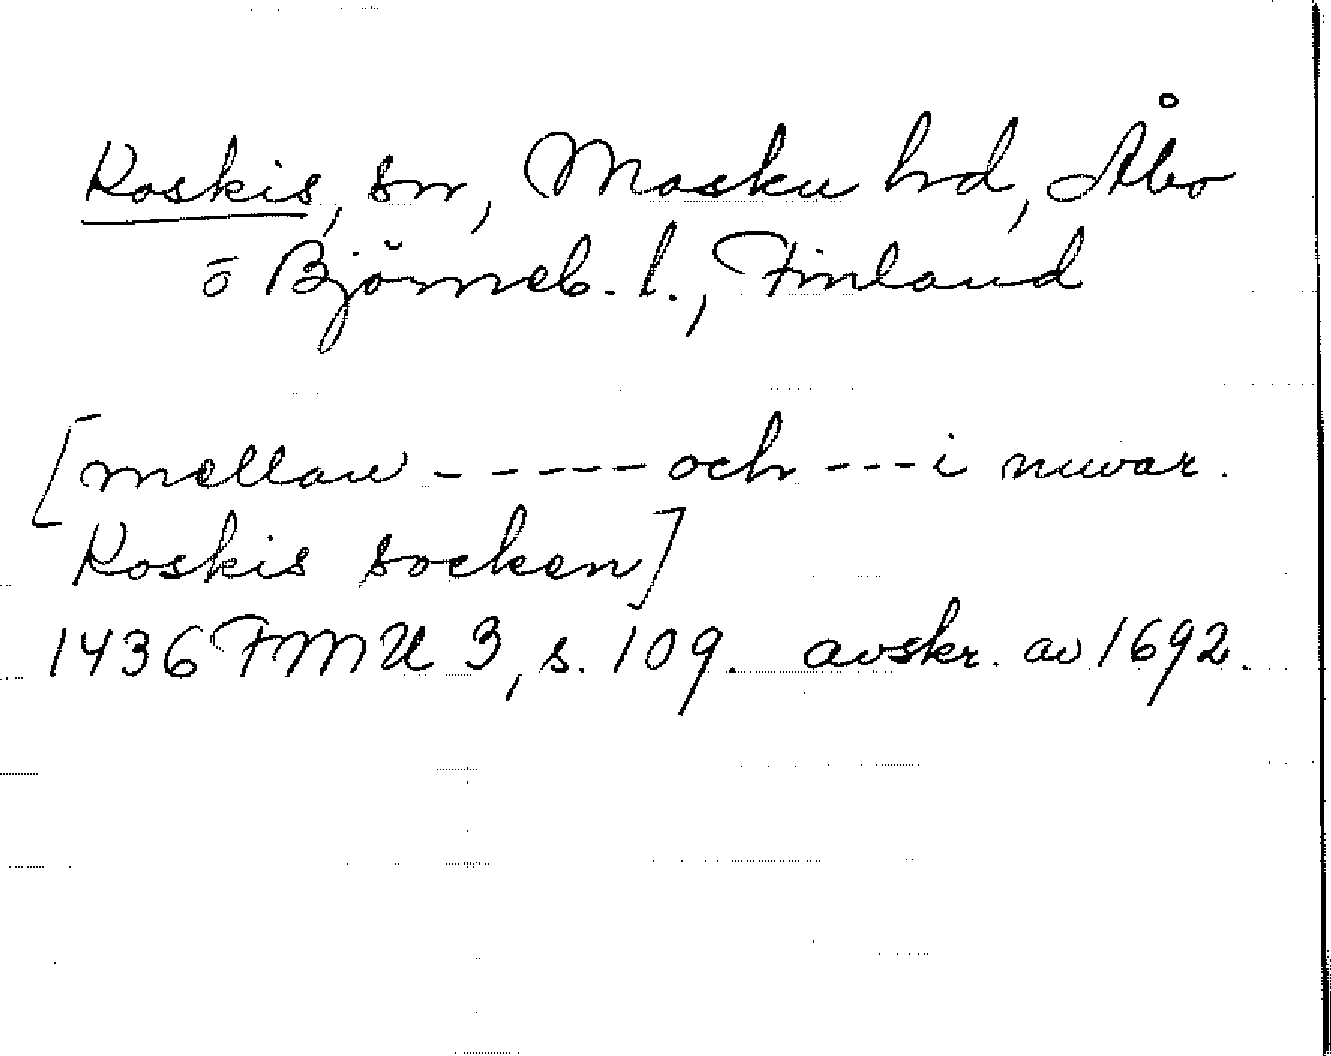 Koskis, sn, Masku hd, Åbo
o Björneb. l., Finland
[mellan ----- och --- i nuvar.
Koskis socken]
1436 FMU 3, s. 109. avskr. av 1692.